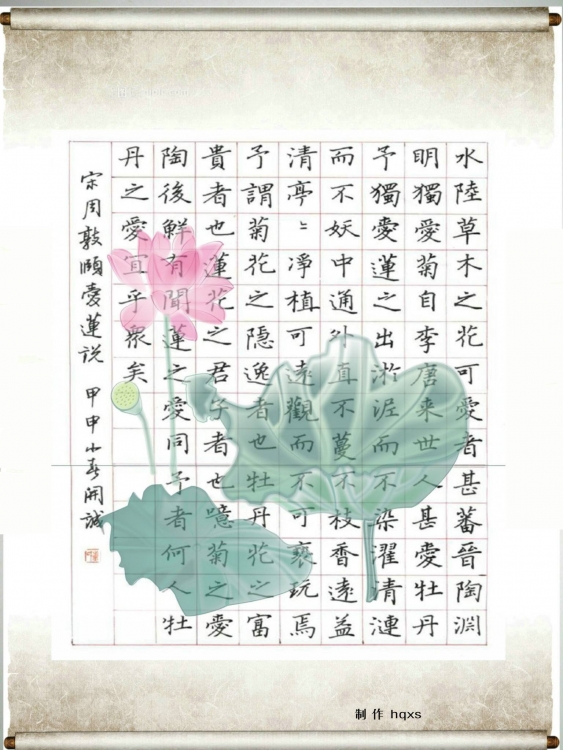 水陸草木之花可愛者甚蕃晉陶渊
明獨愛菊自李唐来世人甚愛牡丹
予獨愛蓮之出淤泥而不染濯清漣
而不妖中通外直不蔓不枝香遠益
清亭〻淨植可遠觀而不可褻玩焉
予謂菊花之隱逸者也牡丹花之富
貴者也蓮花之君子者也噫菊之愛
陶後鮮有聞蓮之愛同予者何人牡
丹之愛宜乎衆矣
宋周敦頤愛蓮说 甲申小春開誠
制作 hqxs